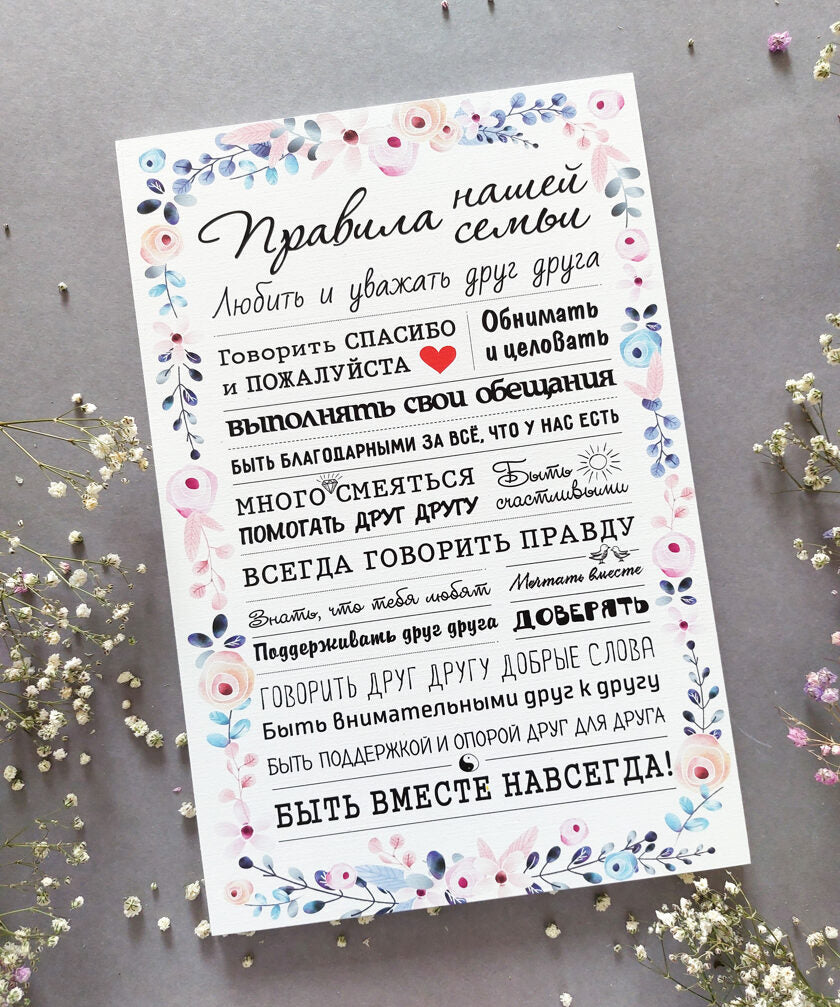 Правила нашей
семьи
Любить и уважать друг друга
Говорить СПАСИБО
и ПОЖАЛУЙСТА
Обнимать
и целовать
выполнять свои обещания
БЫТЬ БЛАГОДАРНЫМИ ЗА ВСЁ, ЧТО У НАС ЕСТЬ
МНОГО СМЕЯТЬСЯ
ПОМОГАТЬ ДРУГ ДРУГУ
Быть
счастливыми
ВСЕГДА ГОВОРИТЬ ПРАВДУ
Знать, что тебя любят
Поддерживать друг друга
Мечтать вместе
ДОВЕРЯТЬ
ГОВОРИТЬ ДРУГ ДРУГУ ДОБРЫЕ СЛОВА
Быть внимательными друг к другу
БЫТЬ ПОДДЕРЖКОЙ И ОПОРОЙ ДРУГ ДЛЯ ДРУГА
БЫТЬ ВМЕСТЕ НАВСЕГДА!